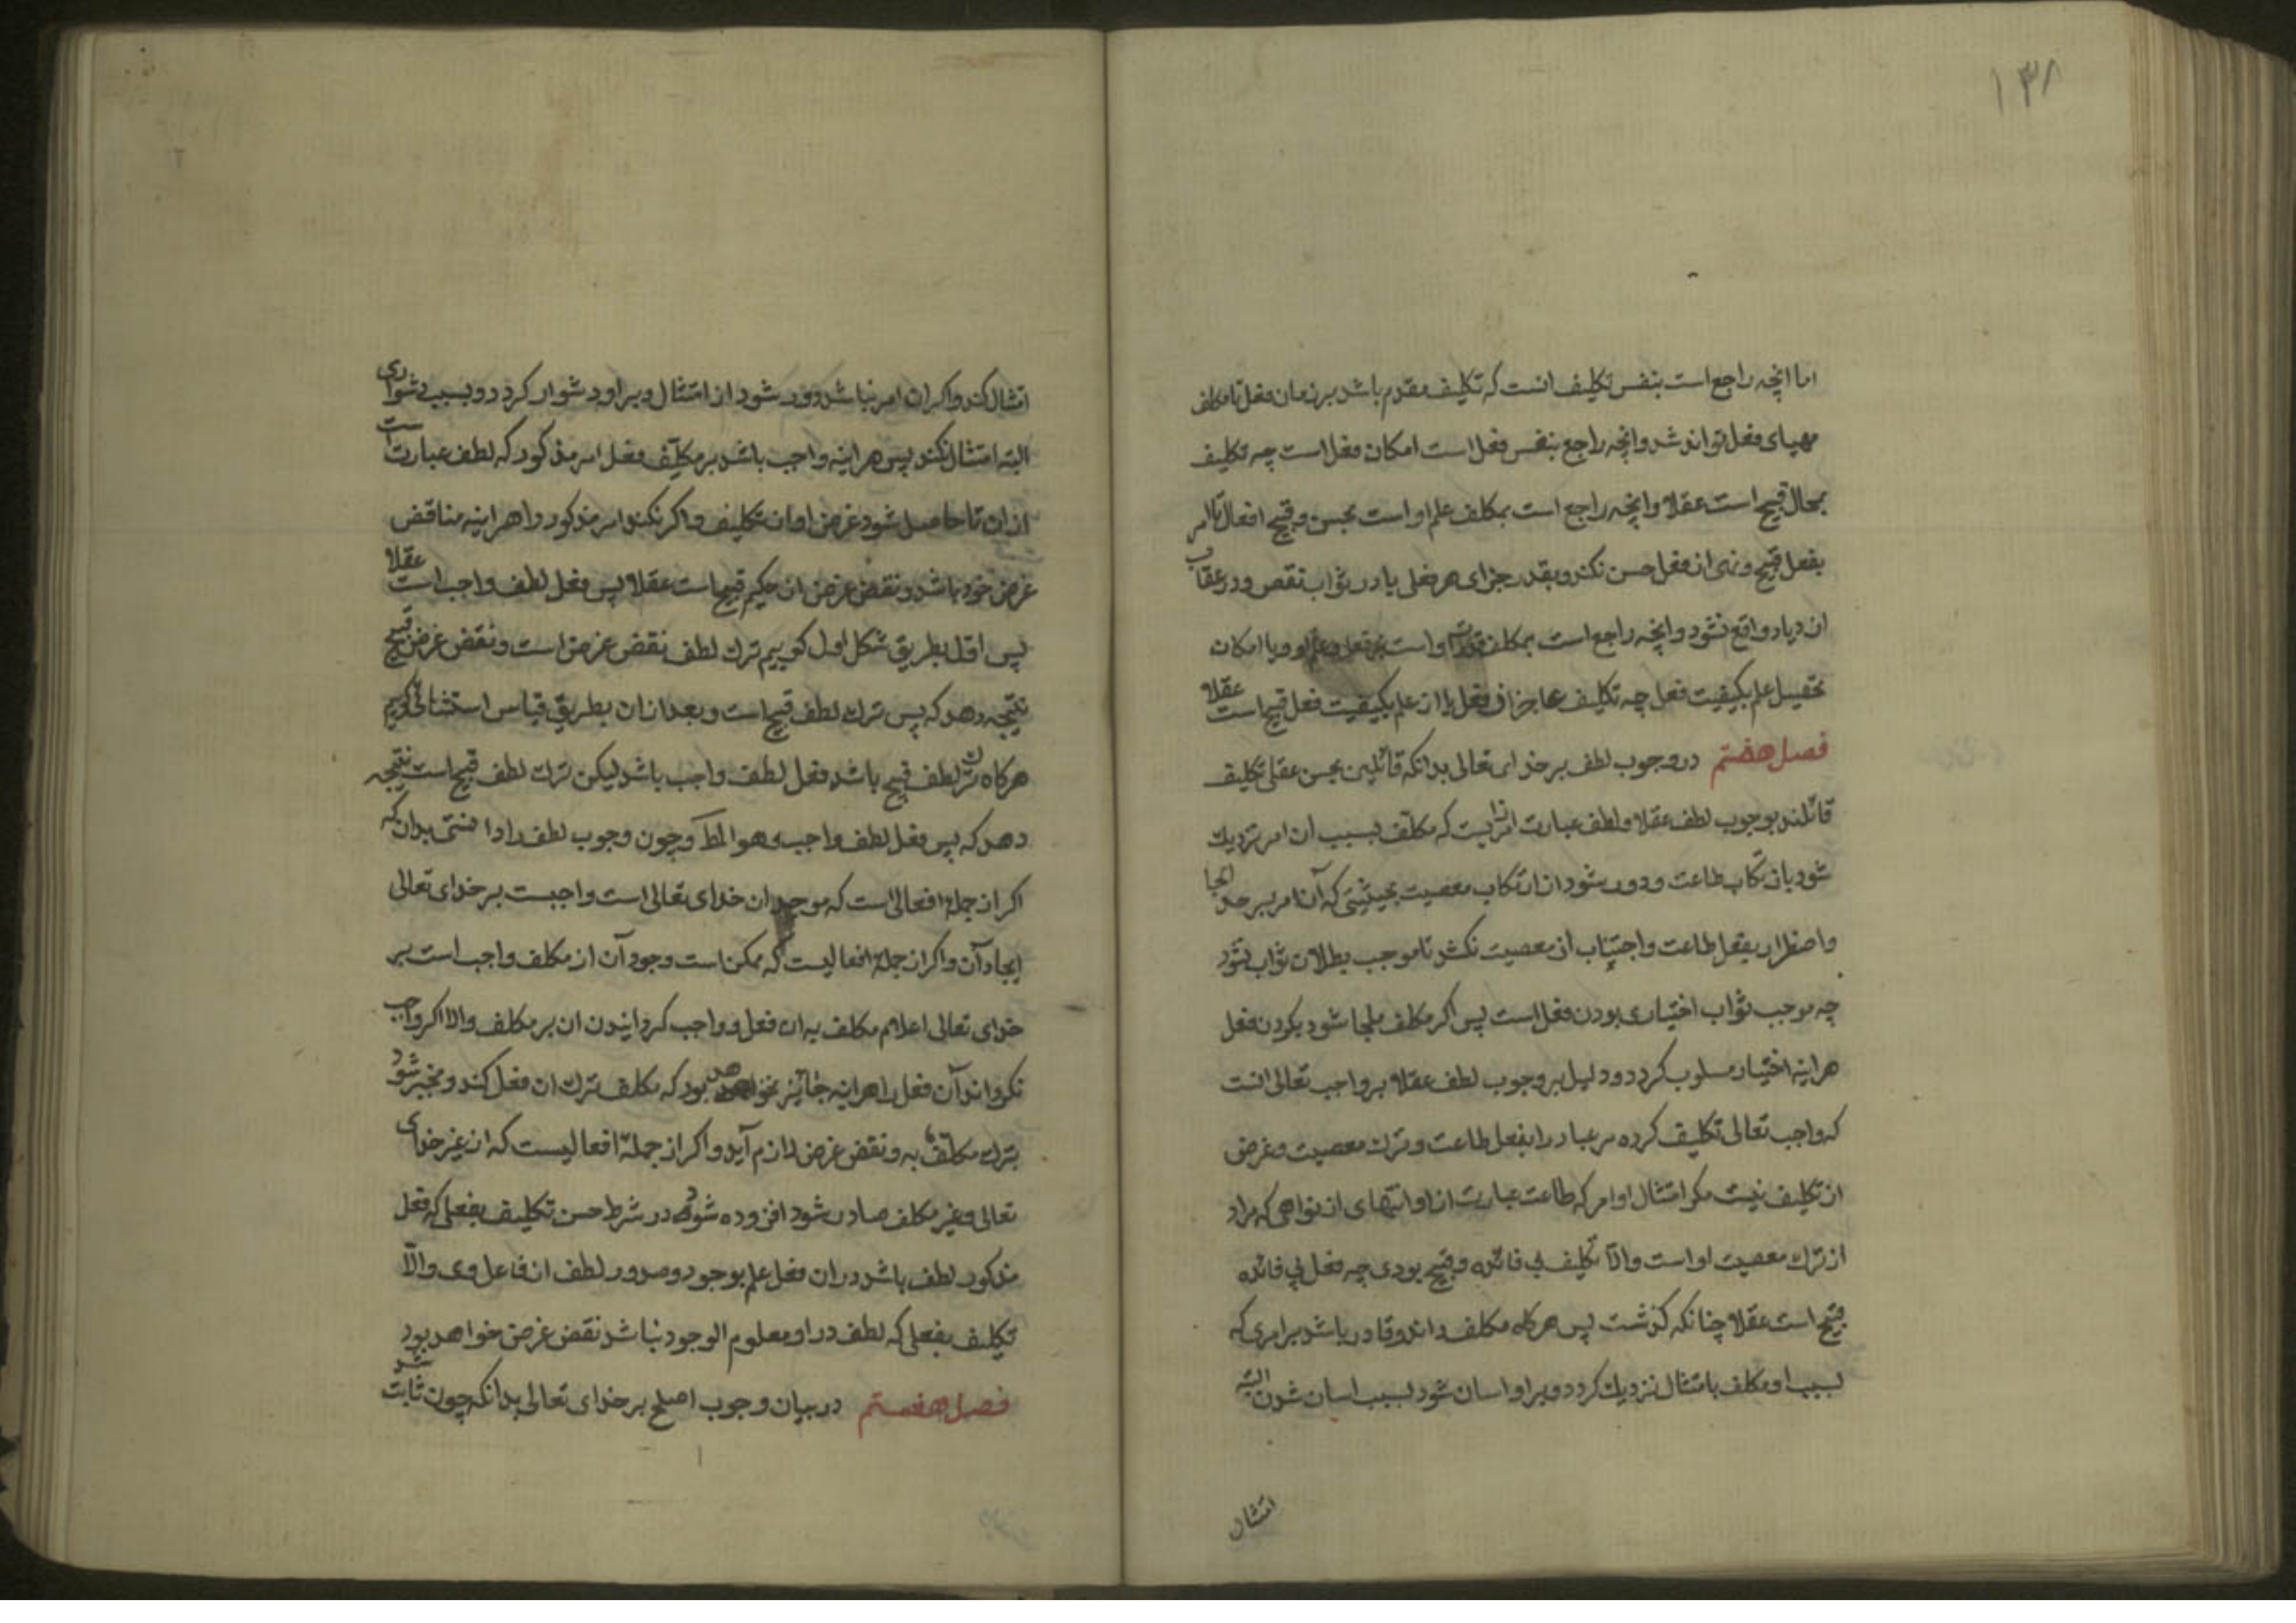 ۱۳۸
اما انچه راجع است بنفس تکلیف انست که تکلیف مقدم باشد بر زمان فعل تا مکلف
مهیای فعل تواند شد وانچه راجع بنفس فعل است امکان فعل است چه تکلیف
بمحال قبیح است عقلا وانچه راجع است بمکلف علم او است بحسن و قبح افعال تا امر
بفعل قبیح و نهی از فعل حسن نکند وبقدر جزای هر فعلی یا در ثواب نقص و در عقاب
ازدیاد واقع نشود وانچه راجع است بمکلف قدرت او است بر فعل و علم او ویا امکان
تحصیل علم بکیفیت فعل چه تکلیف عاجز از فعل یا از علم بکیفیت فعل قبیح است عقلا
فصل هفتم در وجوب لطف بر خدای تعالی بدانکه قائلین بحسن عقلی تکلیف
قائلند بوجوب لطف عقلا ولطف عبارت از امریست که مکلف بسبب ان امر نزدیک
شود بارتکاب طاعت ودور شود از ارتکاب معصیت بحیثیتی که آن امر بسر حد الجا
واضطرار بفعل طاعت واجتناب از معصیت نکشد تا موجب بطلان ثواب نشود
چه موجب ثواب اختیاری بودن فعل است پس اکر مکلف ملجا شود بکردن فعل
هراینه اختیار مسلوب کردد ودلیل بر وجوب لطف عقلا بر واجب تعالی انست
که واجب تعالی تکلیف کرده مر عباد را بفعل طاعت وترک معصیت وغرض
از تکلیف نیست مکر امتثال اوامر که طاعت عبارت از او وانتهای از نواهی که مراد
از ترک معصیت او است والا تکلیف بی فائده و قبیح بودی چه فعل بی فائده
قبیح است عقلا چنانکه کذشت پس هرکاه مکلف داند وقادر باشد بر امری که
بسبب او مکلف بامتثال نزدیک کردد وبر او اسان شود بسبب اسان شدن البته
امتثال
امتثال کند واکر ان امر نباشد دور شود از امتثال وبر او دشوار کردد وبسبب دشواری
البته امتثال نکند پس هراینه واجب باشد بر مکلف فعل امر مذکور که لطف عبارت است
از ان تا حاصل شود غرض او از تکلیف واکر نکند امر مذکور را هراینه مناقض
غرض خود باشد ونقض غرض از حکیم قبیح است عقلا پس فعل لطف واجب است عقلا
پس اولا بطریق شکل اول کوییم ترک لطف نقض غرض است ونقض غرض قبیح
نتیجه دهد که پس ترک لطف قبیح است وبعد از ان بطریق قیاس استثنائی کوییم
هرکاه ترک لطف قبیح باشد فعل لطف واجب باشد لیکن ترک لطف قبیح است نتیجه
دهد که پس فعل لطف واجب وهو المط وچون وجوب لطف را دانستی بدان که
اکر از جمله افعالی است که موجد ان خدای تعالی است واجبست بر خدای تعالی
ایجاد آن واکر از جمله افعالیست که ممکن است وجود آن از مکلف واجب است بر
خدای تعالی اعلام مکلف به ان فعل و واجب کردانیدن ان بر مکلف والا اکر واجب
نکرداند آن فعل را هراینه جائز نخواهد بود که مکلف ترک ان فعل کند و منجر شود
بترک مکلف به ونقض غرض لازم آید واکر از جمله افعالیست که از غیر خدای
تعالی وغیر مکلف صادر شود افزوده شود در شرط حسن تکلیف بفعلی که فعل
مذکور لطف باشد در ان فعل علم بوجود وصدور لطف از فاعل وی والا
تکلیف بفعلی که لطف در او معلوم الوجود نباشد نقض غرض خواهد بود
فصل هشتم در بیان وجوب اصلح بر خدای تعالی بدانکه چون ثابت شد